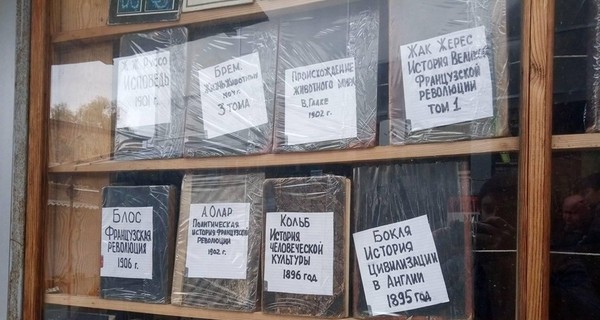 Ж.Ж. Руссо
ИСПОВЕДЬ
1901 г.
БРЕМ
ЖИЗНЬ ЖИВОТНЫХ
3 ТОМА
ПРОИСХОЖДЕНИЕ
ЖИВОТНОГО МИРА
В. ГААКЕ
1902 г.
ЖАК ЖЕРЕС
ИСТОРИЯ ВЕЛИКОЙ
ФРАНЦУЗСКОЙ
РЕВОЛЮЦИИ
ТОМ 1
БЛОС
ФРАНЦУЗСКАЯ
РЕВОЛЮЦИЯ
1906 г.
А. ОЛАР
ПОЛИТИЧЕСКАЯ
ИСТОРИЯ ФРАНЦУЗСКОЙ
РЕВОЛЮЦИИ
1902 г.
КОЛЬБ
ИСТОРИЯ
ЧЕЛОВЕЧЕСКОЙ
КУЛЬТУРЫ
1896 год
БОКЛЯ
ИСТОРИЯ
ЦИВИЛИЗАЦИИ
В АНГЛИИ
1895 год